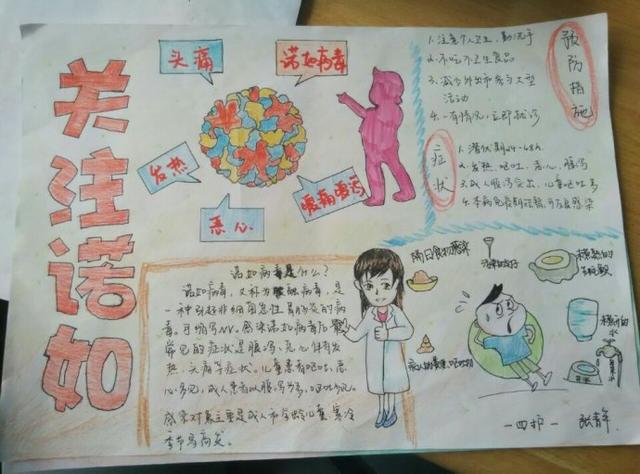 关注诺如
头痛
诺如病毒
发热
恶心
腹痛腹泻
预防措施
1.注意个人卫生,勤洗手
2.不吃不卫生食品
3.减少外出和参与大型
活动
4.一有情况,立即就诊
症状
1.潜伏期24-48h
2.发热、呕吐、恶心、腹泻
3.成人腹泻突出,儿童呕吐多
4.本病免疫期短暂,可反复感染
诺如病毒是什么?
诺如病毒,又称为 病毒,是
一种引起非细菌急性胃肠炎的病
毒,可缩写NV,感染诺如病毒后
常见的症状是腹泻、恶心伴有发
热、头痛等症状。儿童患者呕吐、恶
心多见,成人患者以腹泻为多,呕吐少见。
感染对象主要是成人和学龄儿童,寒冷
季节高发。
隔日食物
病人的粪便、呕吐物
一四护
张青